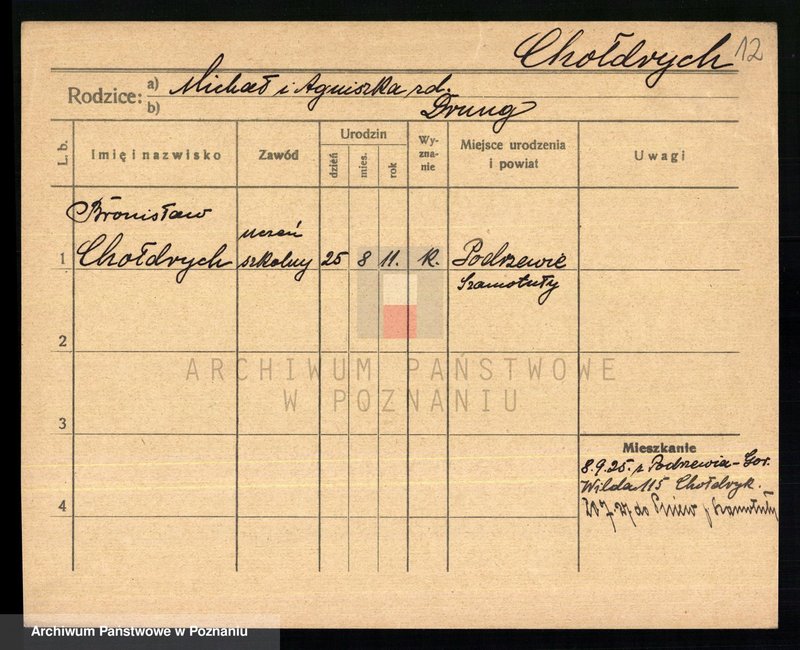 Chołdrych 12
Rodzice: a) Michał i Agnieszka zd.
b) Drung
L. b.
Imię i nazwisko
Zawód
Urodzin
dzień
mies.
rok
Wy-
zna-
nie
Miejsce urodzenia
i powiat
Uwagi
Bronisław
uczeń
1 Chołdrych szkolny 25 8 11. K. Podrzewie
Szamotuły
2
ARCHIWUM PAŃSTWOWE
W POZNANIU
3
Mieszkanie
8.9.25. z Podrzewia - Gór.
Wilda 115 Chołdryk.
4
do Pniew p. Szamotuły
Archiwum Państwowe w Poznaniu